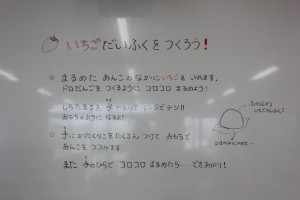 いちごだいふくをつくろう!
まるめた あんこのなかにいちごを いれます。
ドロだんごをつくるように コロコロ まるめよう!
しらたまこと 水やさとうで レンジでチン!!
おもちゃようになるよ!
手にかたくりこをたくさん つけて おもちで
あんこを つつみます
また 手のひらで コロコロ まるめたら… できあがり!